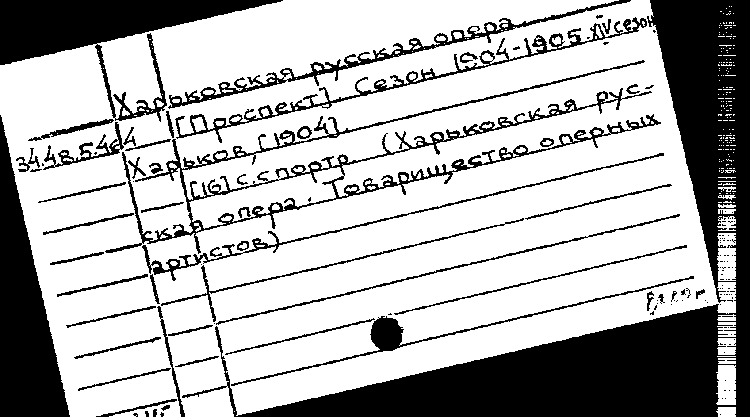 Харьковская русская опера.
[Проспект]. Сезон 1904-1905. XIV сезон
34.48.5.464
Харьков, [1904].
[16] с. с портр. (Харьковская рус-
ская опера. Товарищество оперных
артистов)